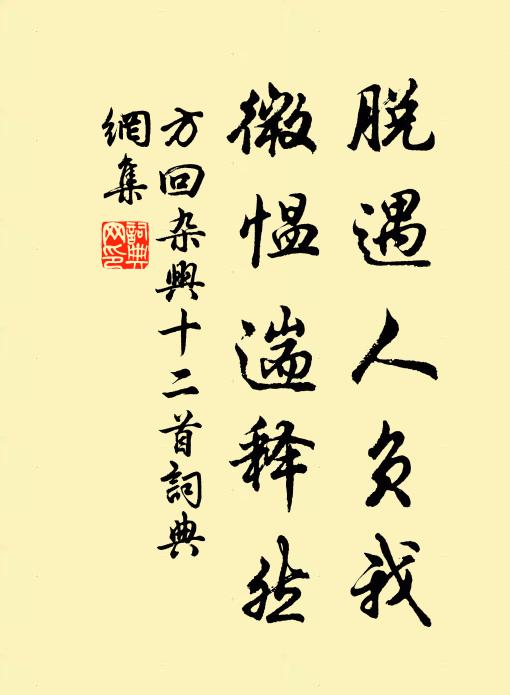 脱遇人负我
微愠遄释然
方回杂興十二首詞典
網集
詞典网印